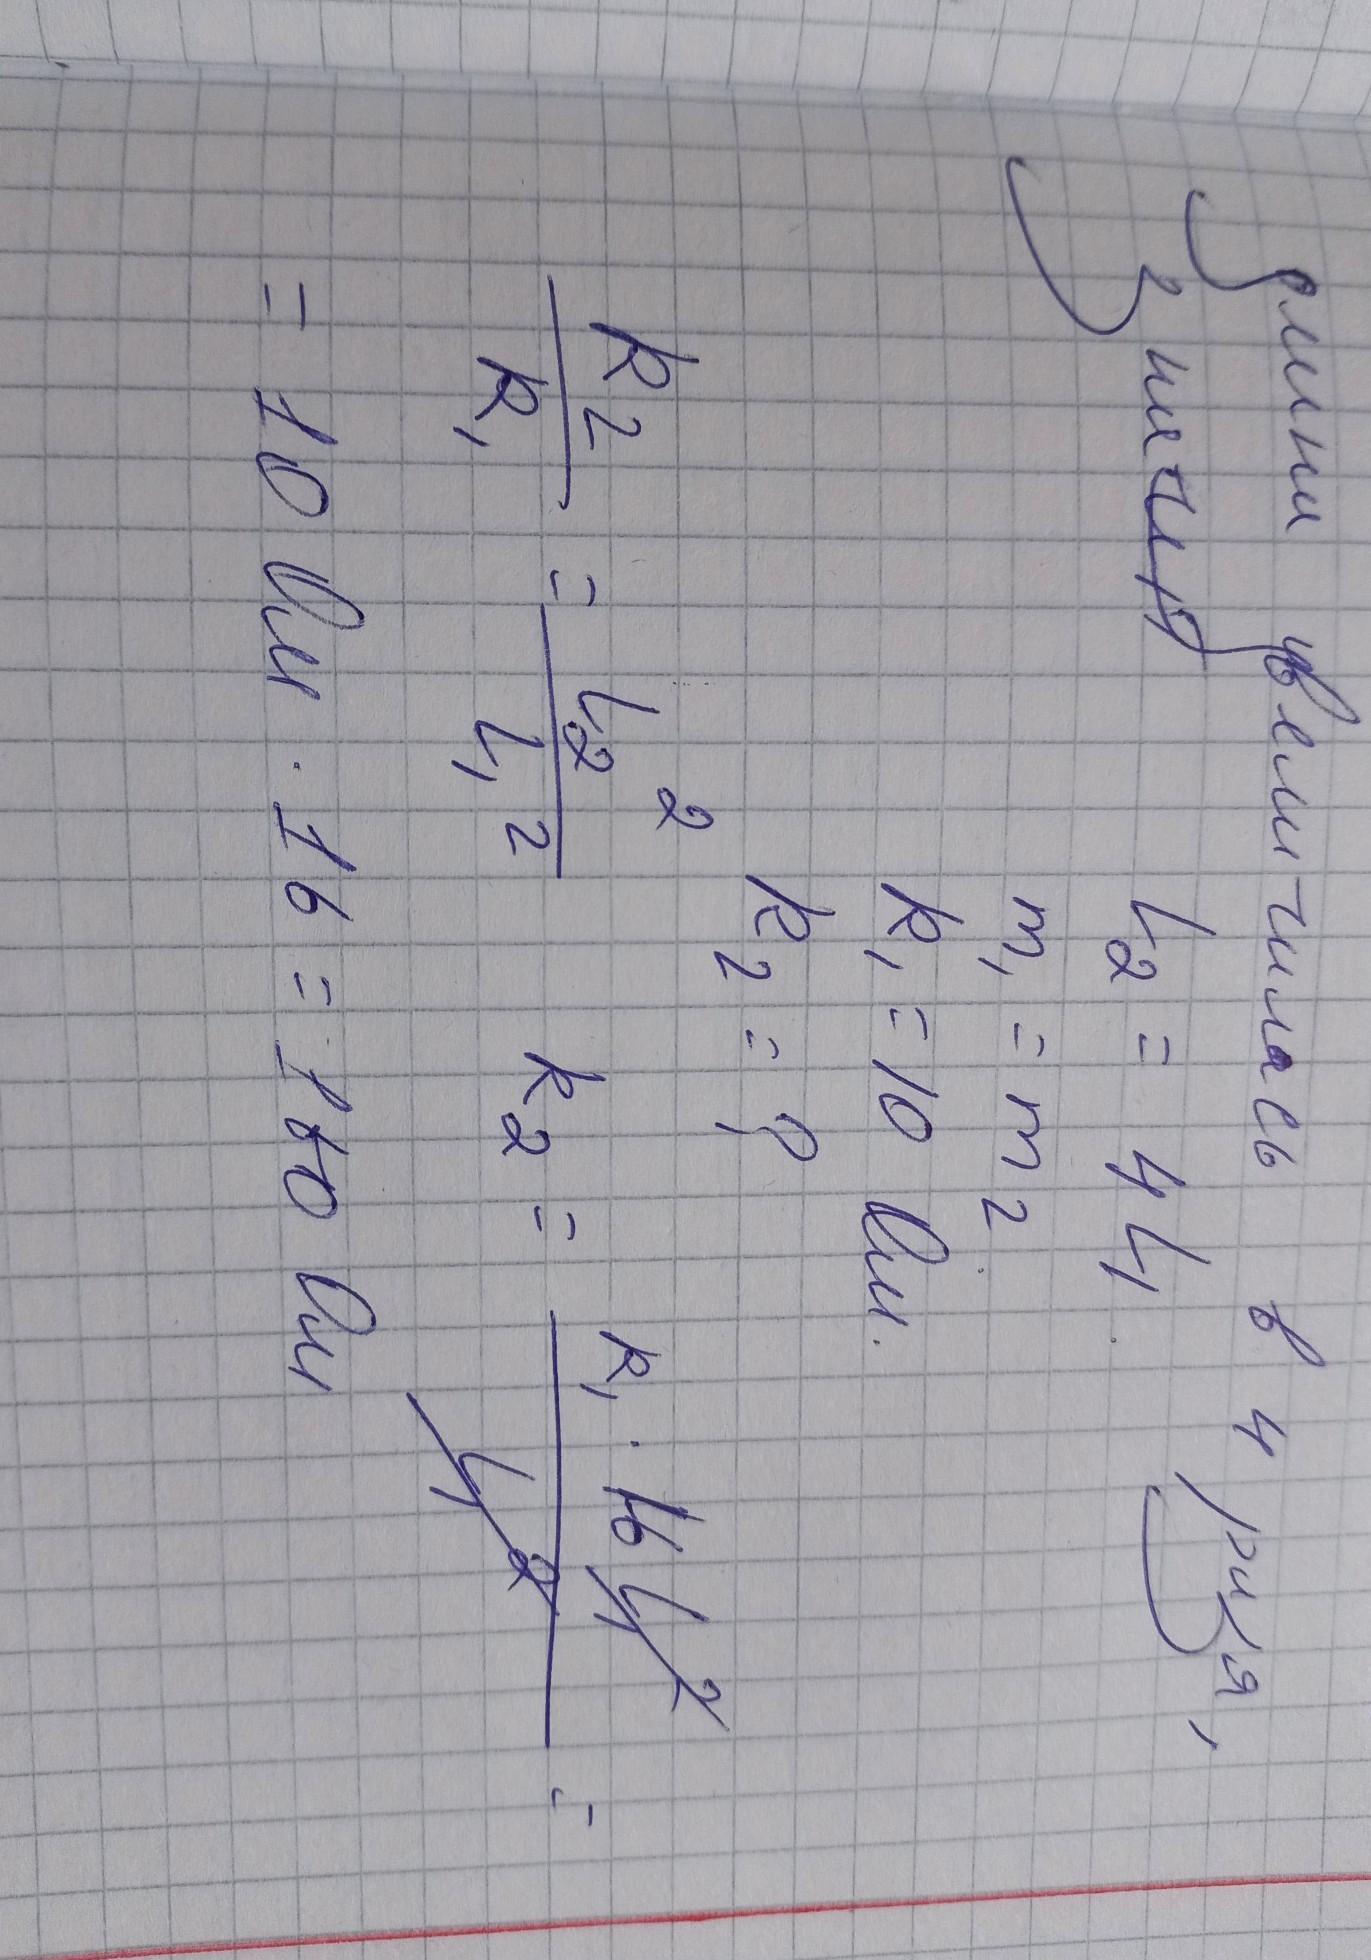 Длина увеличилась в 4 раза,
значит
L₂ = 4 L₁.
m₁ = m₂.
R₁ = 10 Ом.
R₂ = ?
R₂/R₁ = L₂²/L₁² R₂ = R₁ · 16 L₁²/L₁² =
= 10 Ом · 16 = 160 Ом